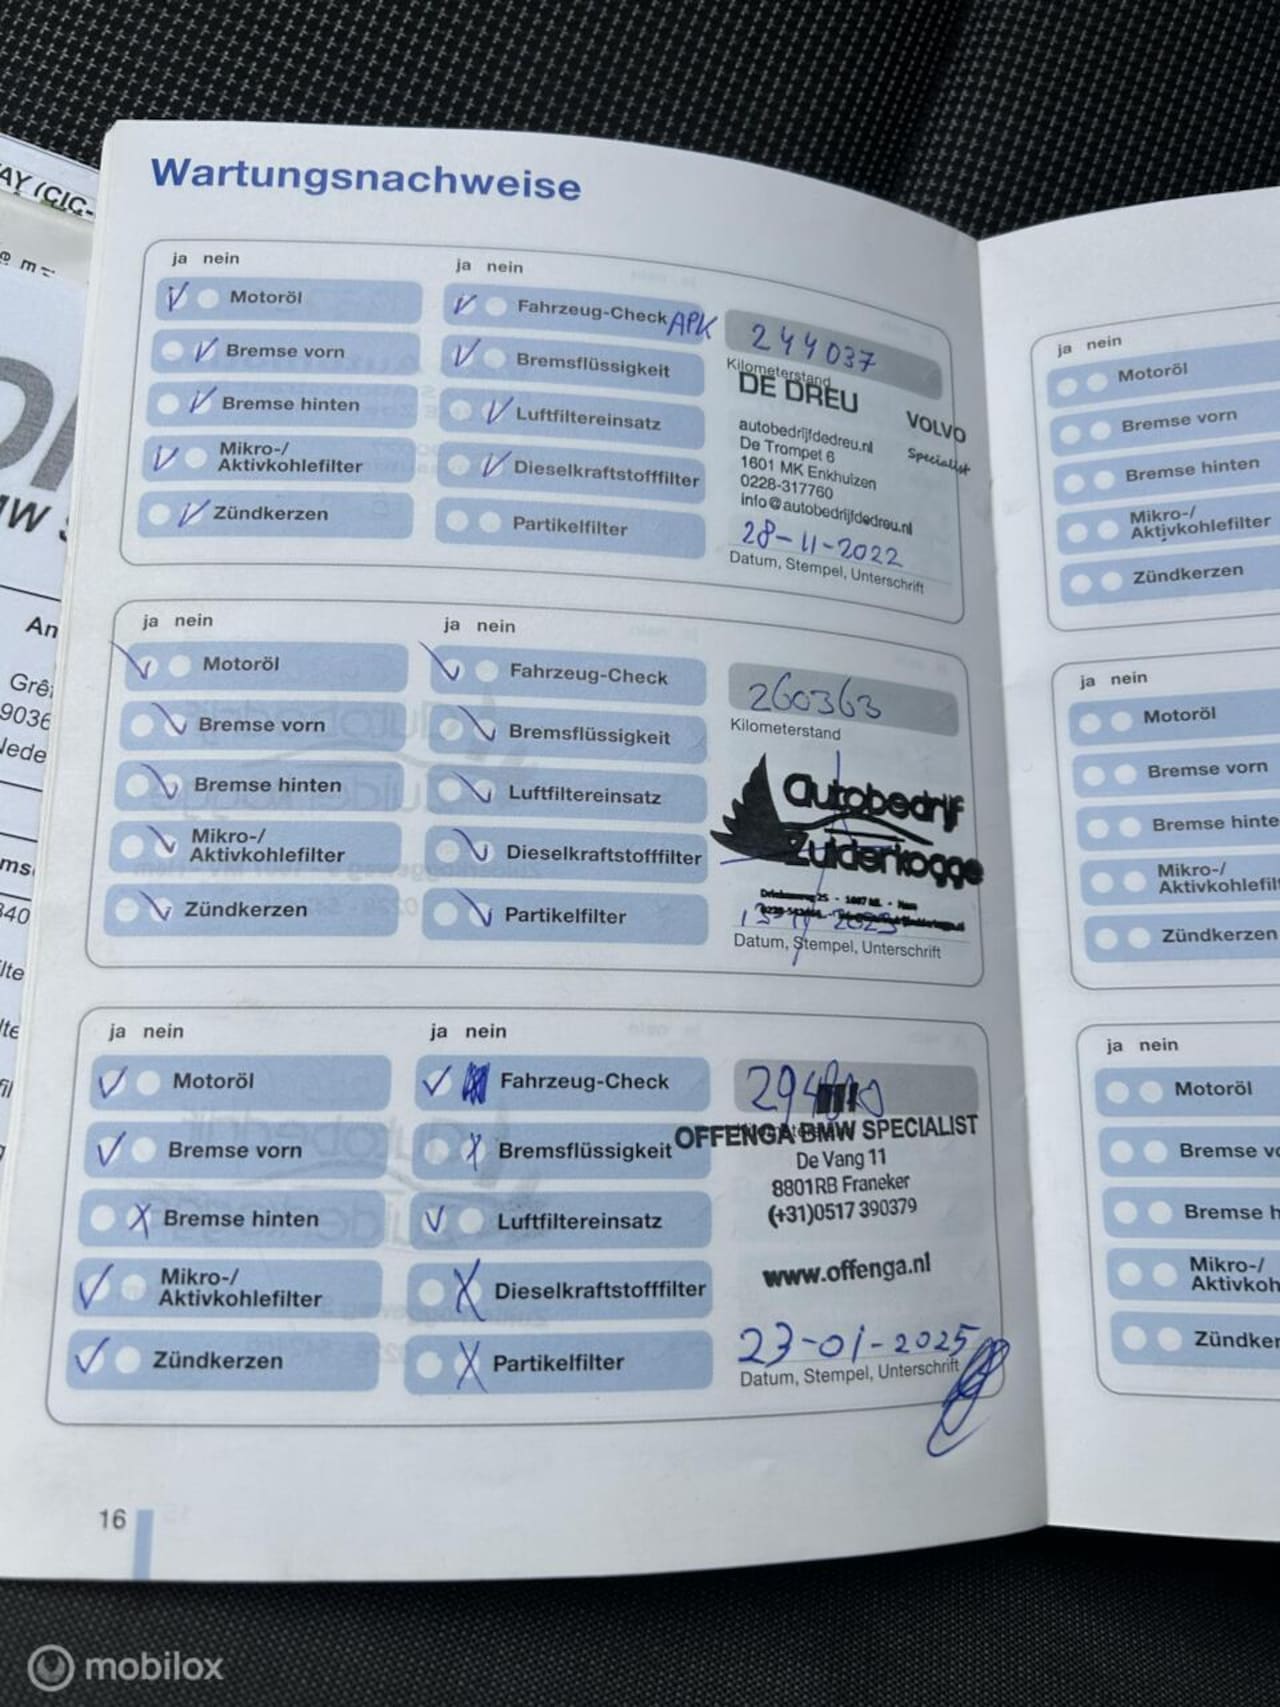 Wartungsnachweise
ja nein
Motoröl
Bremse vorn
Bremse hinten
Mikro-/
Aktivkohlefilter
Zündkerzen
ja nein
Fahrzeug-Check APK
Bremsflüssigkeit
Luftfiltereinsatz
Dieselkraftstofffilter
Partikelfilter
244037
Kilometerstand
DE DREU
VOLVO
Specialist
autobedrijfdedreu.nl
De Trompet 6
1601 MK Enkhuizen
0228-317760
info@autobedrijfdedreu.nl
28-11-2022
Datum, Stempel, Unterschrift
ja nein
Motoröl
Bremse vorn
Bremse hinten
Mikro-/
Aktivkohlefilter
Zündkerzen
ja nein
Fahrzeug-Check
Bremsflüssigkeit
Luftfiltereinsatz
Dieselkraftstofffilter
Partikelfilter
260363
Kilometerstand
Autobedrijf
Zuiderkogge
2023
Datum, Stempel, Unterschrift
ja nein
Motoröl
Bremse vorn
Bremse hinten
Mikro-/
Aktivkohlefilter
Zündkerzen
ja nein
Fahrzeug-Check
Bremsflüssigkeit
Luftfiltereinsatz
Dieselkraftstofffilter
Partikelfilter
OFFENGA BMW SPECIALIST
De Vang 11
8801RB Franeker
(+31)0517 390379
www.offenga.nl
23-01-2025
Datum, Stempel, Unterschrift
16
ja nein
Motoröl
Bremse vorn
Bremse hinten
Mikro-/
Aktivkohlefilter
Zündkerzen
ja nein
Motoröl
Bremse vorn
Bremse hinte
Mikro-/
Aktivkohlefilt
Zündkerzen
ja nein
Motoröl
Bremse vo
Bremse h
Mikro-/
Aktivkoh
Zündker
AY (CIC-
An
Grê
9036
Nede
ms
340
lte
mobilox